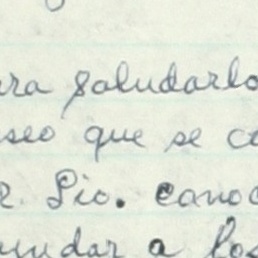 ara saludarlo
seo que se co
r. Lio. canoc
undar a los